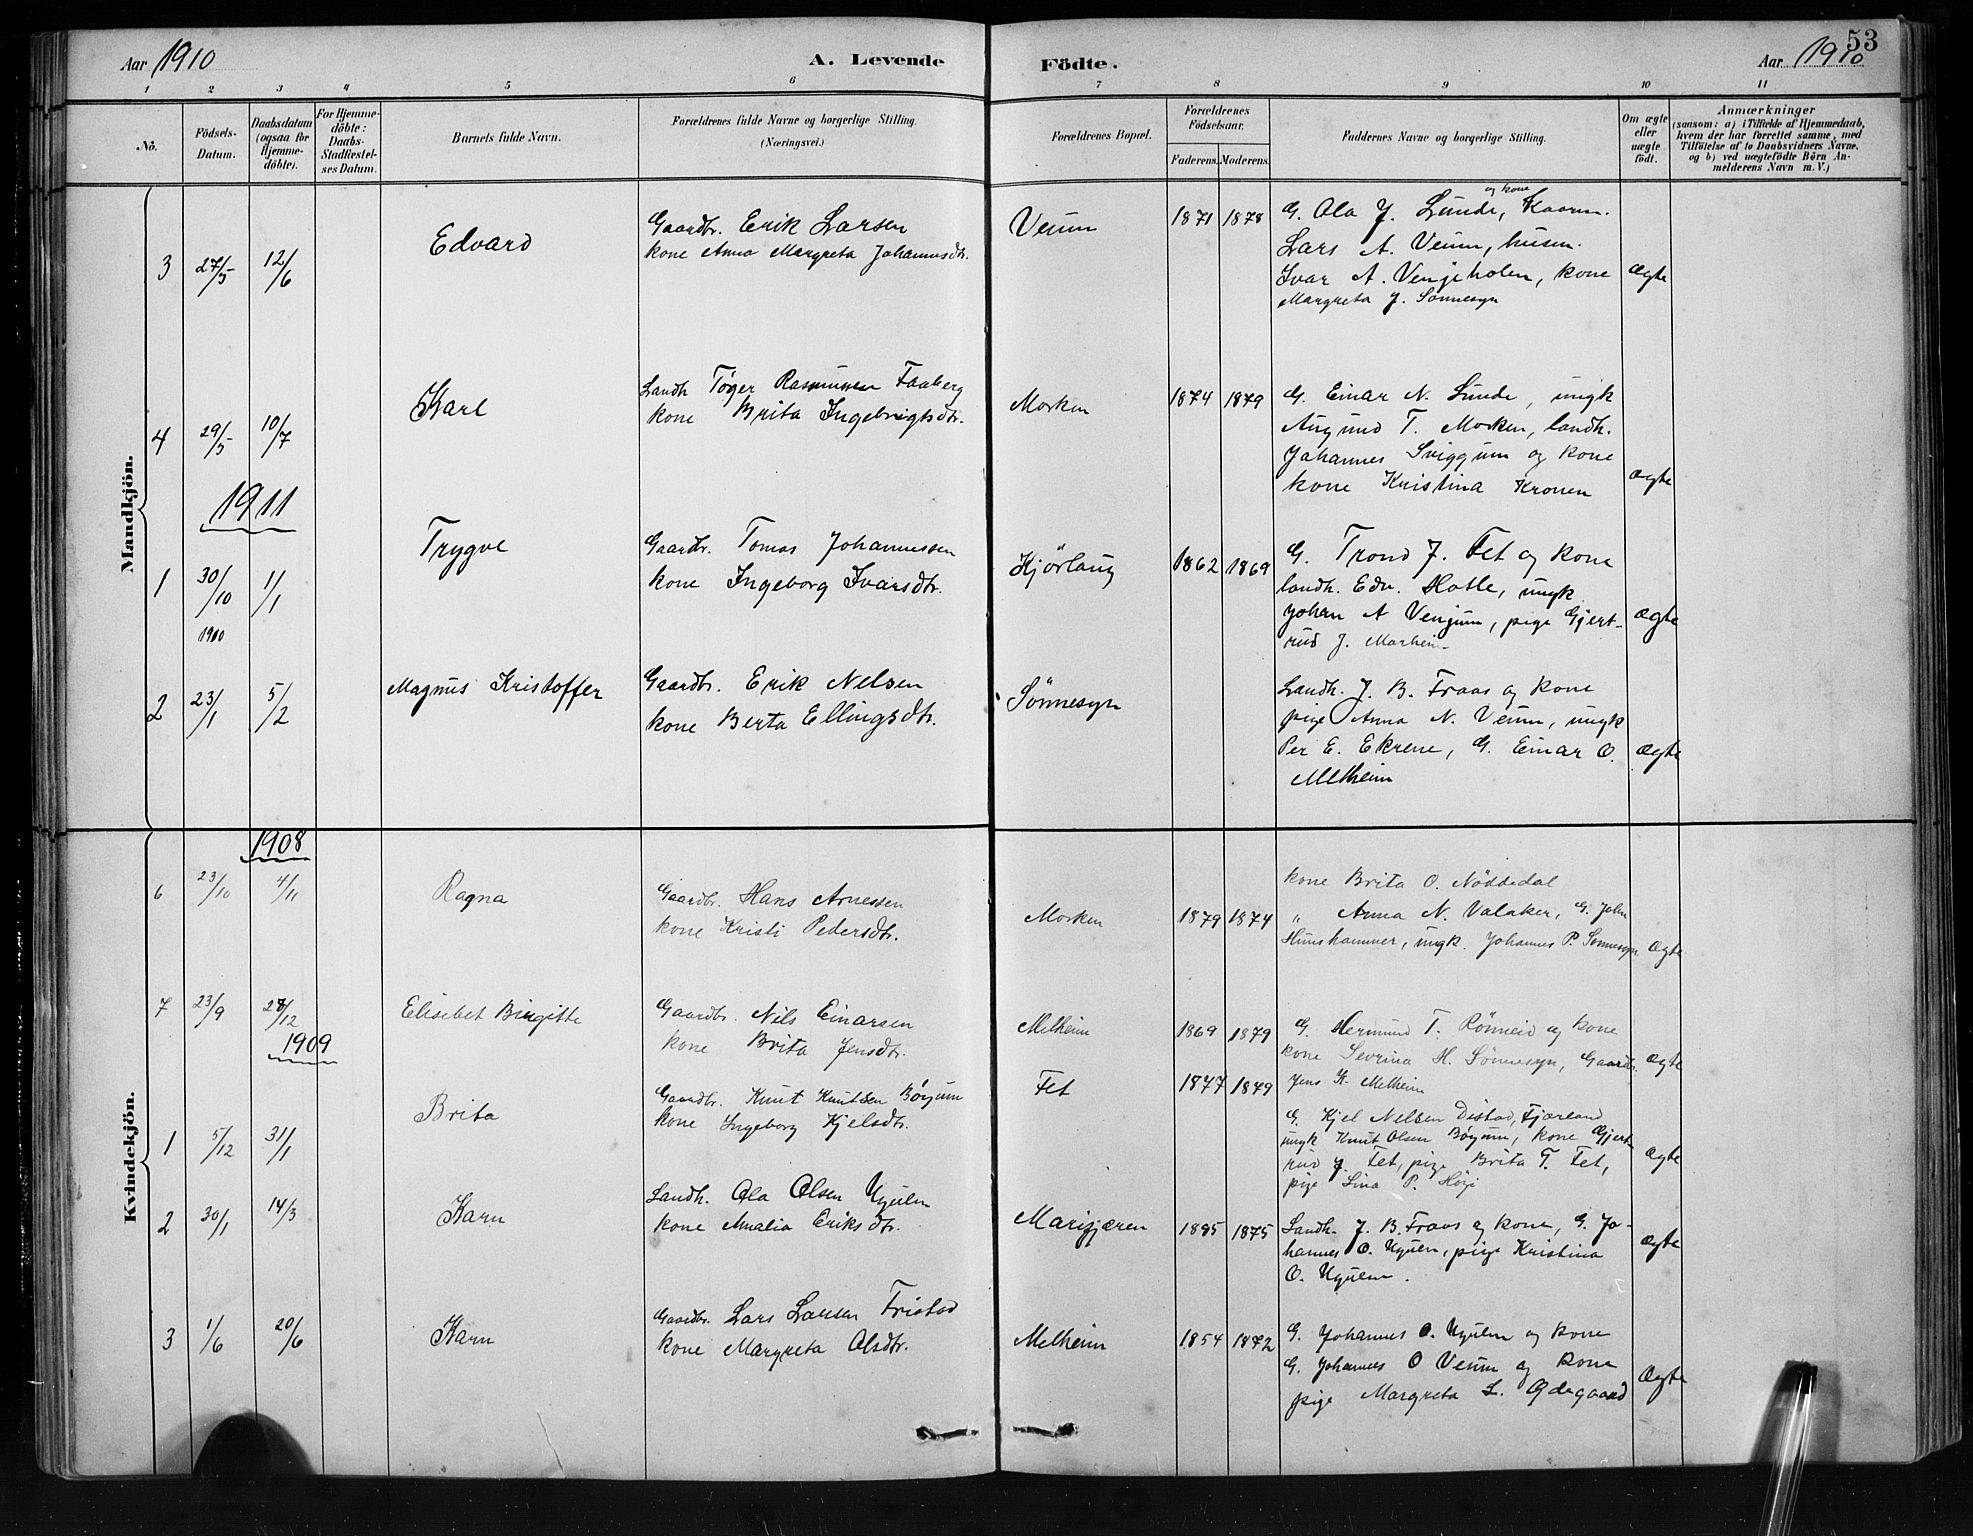 53
Aar 1910 A. Levende Födte. Aar 1910
1 2 3 4 5 6 7 8 9 10 11
No.
Födsels-Datum.
Daabsdatum (ogsaa for Hjemme-döbte).
For Hjemme-döbte: Daabs-Stadfæstel-ses Datum.
Barnets fulde Navn.
Forældrenes fulde Navne og borgerlige Stilling. (Næringsvei.)
Forældrenes Bopæl.
Forældrenes Födselsaar.
Faderens. Moderens.
Faddernes Navne og borgerlige Stilling.
Om ægte eller uægte födt.
Anmærkninger
(saasom: a) i Tilfælde af Hjemmedaab,
hvem der har forrettet samme, med
Tilföielse af to Daabsvidners Navne.
og b) ved uægtefödte Börn An-
melderens Navn m.V.)
Mandkjön.
3 27/5 12/6 Edvard
Gaardbr. Erik Larsen
kone Anna Margreta Johannesdtr.
Veum 1871 1878
og kone
G. Ola J. Lunde, Kaarm.
Lars A. Veum, husm.
Ivar A. Venjeholen, kone
Margreta J. Sønnesyn
Ægte
4 29/5 10/7 Karl
Landh. Tøger Rasmussen Faaberg
kone Brita Ingebrigtsdtr.
Morken 1874 1879
G. Einar N. Lunde, ungk
Augund T. Morken, landh.
Johannes Sviggum og kone
kone Kristina Kronen
ægte
1911
1 30/10 1/1 Trygve
1910
Gaardbr. Tomas Johannessen
kone Ingeborg Ivarsdtr.
Kjörlaug 1862 1869
G. Trond J. Fet og kone
landh. Edv. Hatle, ungk
Johan A Venjum, pige Gjert-
rud J. Marheim
ægte
2 23/1 5/2 Magnus Kristoffer
Gaardbr. Erik Nelsen
kone Berta Ellingsdtr.
Sønnesyn
Landh. J. B. Fraas og kone
pige Anna N. Veum, ungk
Per E. Ekrene, G. Einar O.
Melheim
Ægte
Kvindekjön.
1908
6 23/10 4/11 Ragna
Gaardbr. Hans Arnessen
kone Kristi Pedersdtr.
Morken 1879 1874
kone Brita O. Nöddedal
" Anna N. Valaker, G. John
Hunshammer, ungk. Johannes P. Sønnesyn
Ægte
7 23/9 28/12 Elisebet Birgitte
Gaardbr. Nils Einarsen
kone Brita Jensdtr.
Melheim 1869 1879
G. Hermund T. Rønneid og kone
kone Sevrina H. Sønnesyn, Gaardbr.
Jens K. Melheim
Ægte
1909
1 5/12 31/1 Brita
Gaardbr. Knut Knutsen Bøyum
kone Ingeborg Kjelsdtr.
Fet 1877 1879
G. Kjel Nelsen Distad, Fjærland
ungk Knut Olsen Bøyum, kone Gjert-
rud J. Fet, pige Brita T. Fet,
pige Lina P. Høgi
Ægte
2 30/1 14/3 Karn
Landh. Ola Olsen Uguln
kone Amalia Eriksdtr.
Marifjæren 1885 1875
Landh. J. B. Fraas og kone, G. Jo-
hannes O. Uguln, pige Kristina
O. Uguln.
Ægte
3 1/6 20/6 Karn
Gaardbr. Lars Larsen Fristad
kone Margreta Olsdtr.
Melheim 1854 1872
G. Johannes O. Uguln og kone
G. Johannes O Veum og kone
pige Margreta L. Ødegaard
Ægte